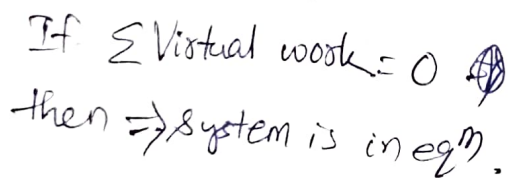 If Σ Virtual work = 0
then ⇒ System is in eqm.